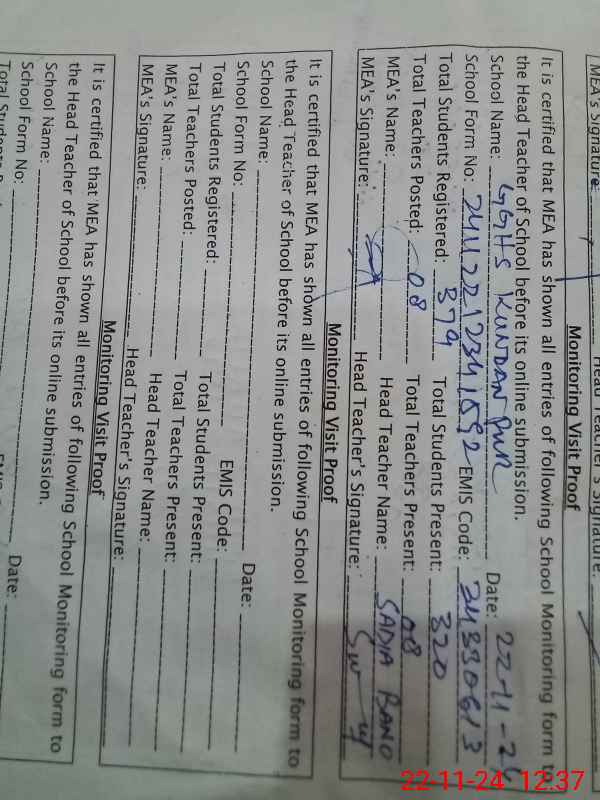 MEA's Signature: Head Teacher's Signature:
Monitoring Visit Proof
It is certified that MEA has shown all entries of following School Monitoring form to
the Head Teacher of School before its online submission.
School Name: GGHS KUNDAN PUR Date: 22-11-24
School Form No: EMIS Code: 24330613
Total Students Registered: 379 Total Students Present: 320
Total Teachers Posted: 08 Total Teachers Present: 08
MEA's Name: Head Teacher Name: SADIA BANO
MEA's Signature: Head Teacher's Signature:
Monitoring Visit Proof
It is certified that MEA has shown all entries of following School Monitoring form to
the Head Teacher of School before its online submission.
School Name: Date:
School Form No: EMIS Code:
Total Students Registered: Total Students Present:
Total Teachers Posted: Total Teachers Present:
MEA's Name: Head Teacher Name:
MEA's Signature: Head Teacher's Signature:
Monitoring Visit Proof
It is certified that MEA has shown all entries of following School Monitoring form to
the Head Teacher of School before its online submission.
School Name: Date:
School Form No:
22-11-24 12:37